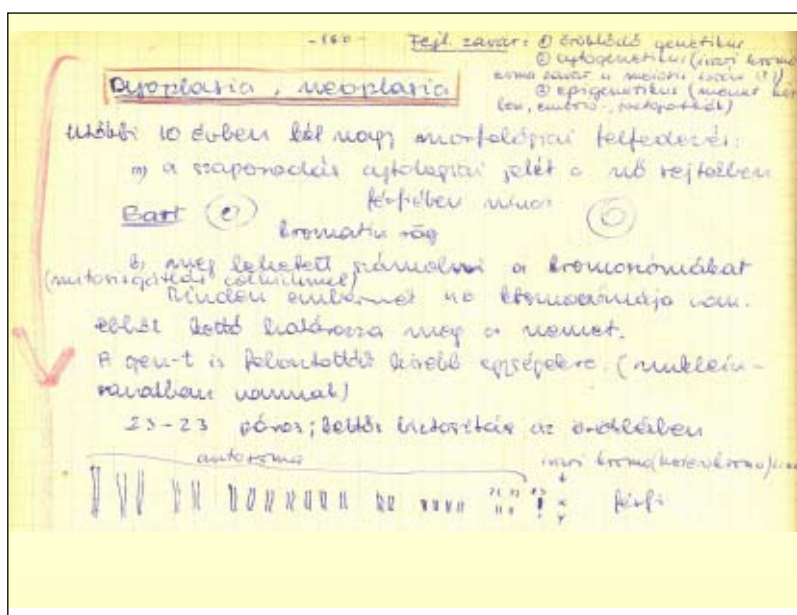 -160-
Fejl. zavar: ① öröklődő genetikus
② cytogenetikus (ivari kromo-
zoma zavar a meiosis során (?))
③ epigenetikus (méhet
ben, embrio-, )
Dysplasia, neoplasia
Utóbbi 10 évben két nagy morfológiai felfedezés:
a) a szaporodás cytologiai jelét a nő sejtjeiben
férfiében nincs
Barr
kromatin rög
b, meg lehetett számolni a kromosómákat
(mitosisgátlás colhicinnel)
Minden embernek 46 kromosomája van.
ebből kettő határozza meg a nemet.
A gen-t is felbontották kisebb egységekre. (nuklein-
savakban vannak)
23-23 páros; kettős biztosítás az öröklésben
autosoma
ivari kromo(heterokromo)
21 22 23
x
y
férfi